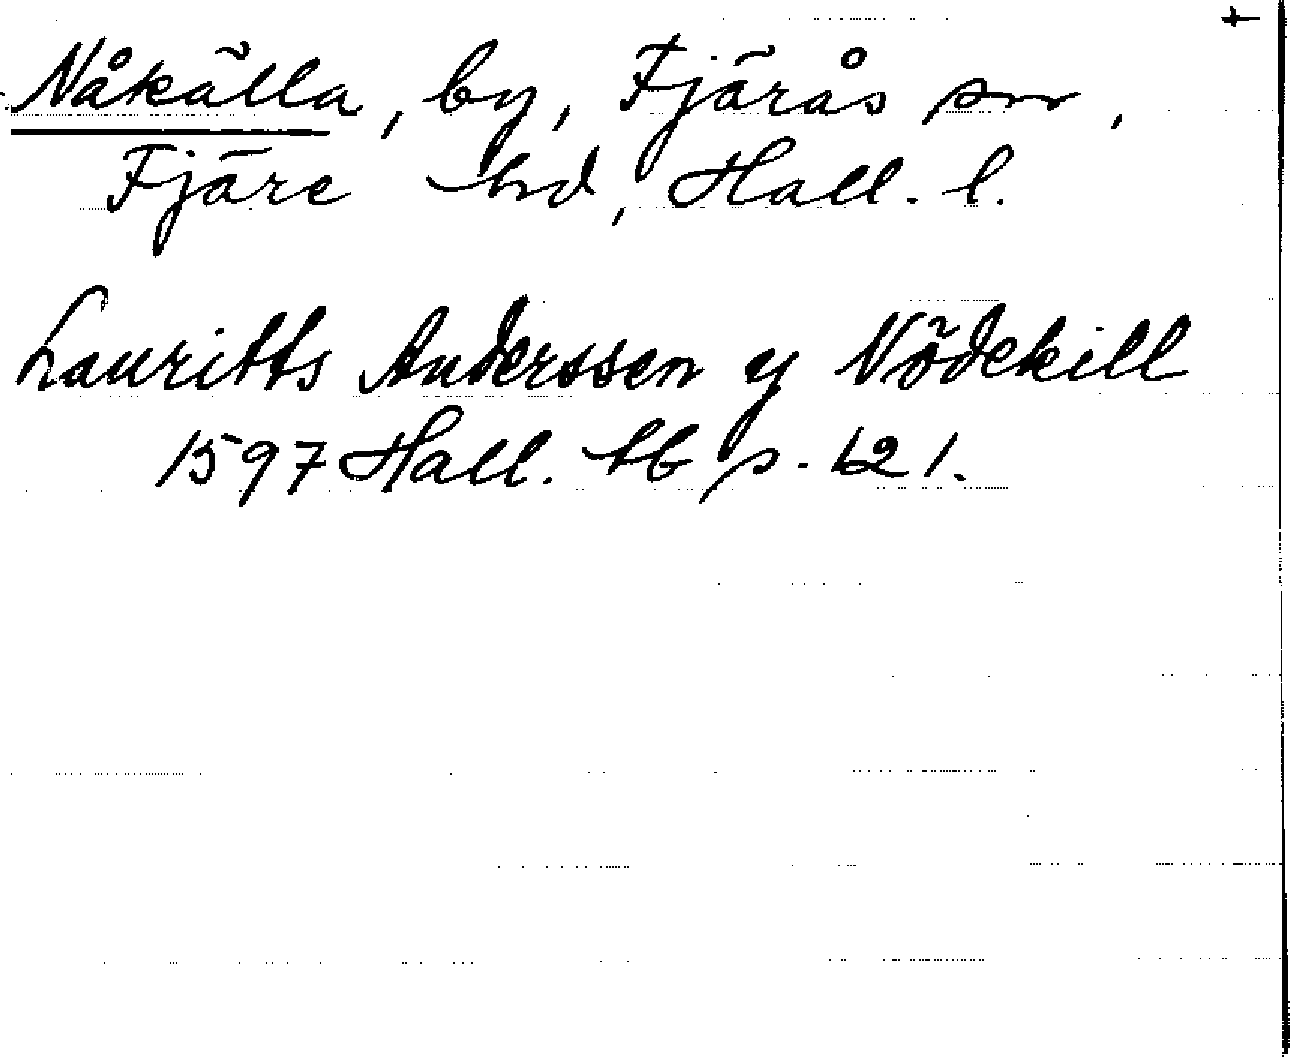 Nåkälla, by, Fjärås sn,
Fjäre hd, Hall. l.
Lauritts Anderssen y Nödekill
1597 Hall. tb p. 621.